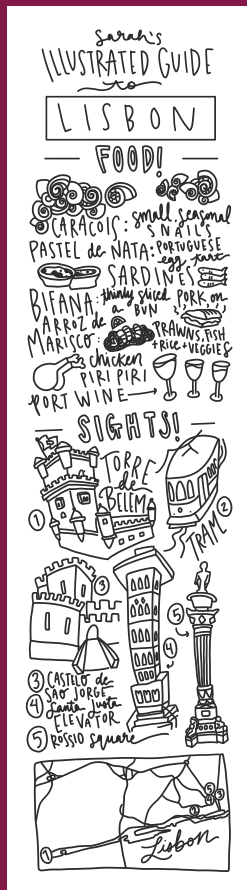 Sarah's
ILLUSTRATED GUIDE
to
LISBON
FOOD!
CARACOIS: small seasonal
SNAILS
PASTEL de NATA: PORTUGUESE
egg tart
SARDINES
BIFANA: thinly sliced PORK on
a BUN
ARROZ de
MARISCO: PRAWNS, FISH
+ RICE + VEGGIES
chicken
PIRI PIRI
PORT WINE
SIGHTS!
TORRE
de
BELEM
1
TRAM 2
3
4
5
3 CASTELO de
SAO JORGE
4 Santa Justa
ELEVATOR
5 ROSSIO square
5
4
3
2
1
Lisbon